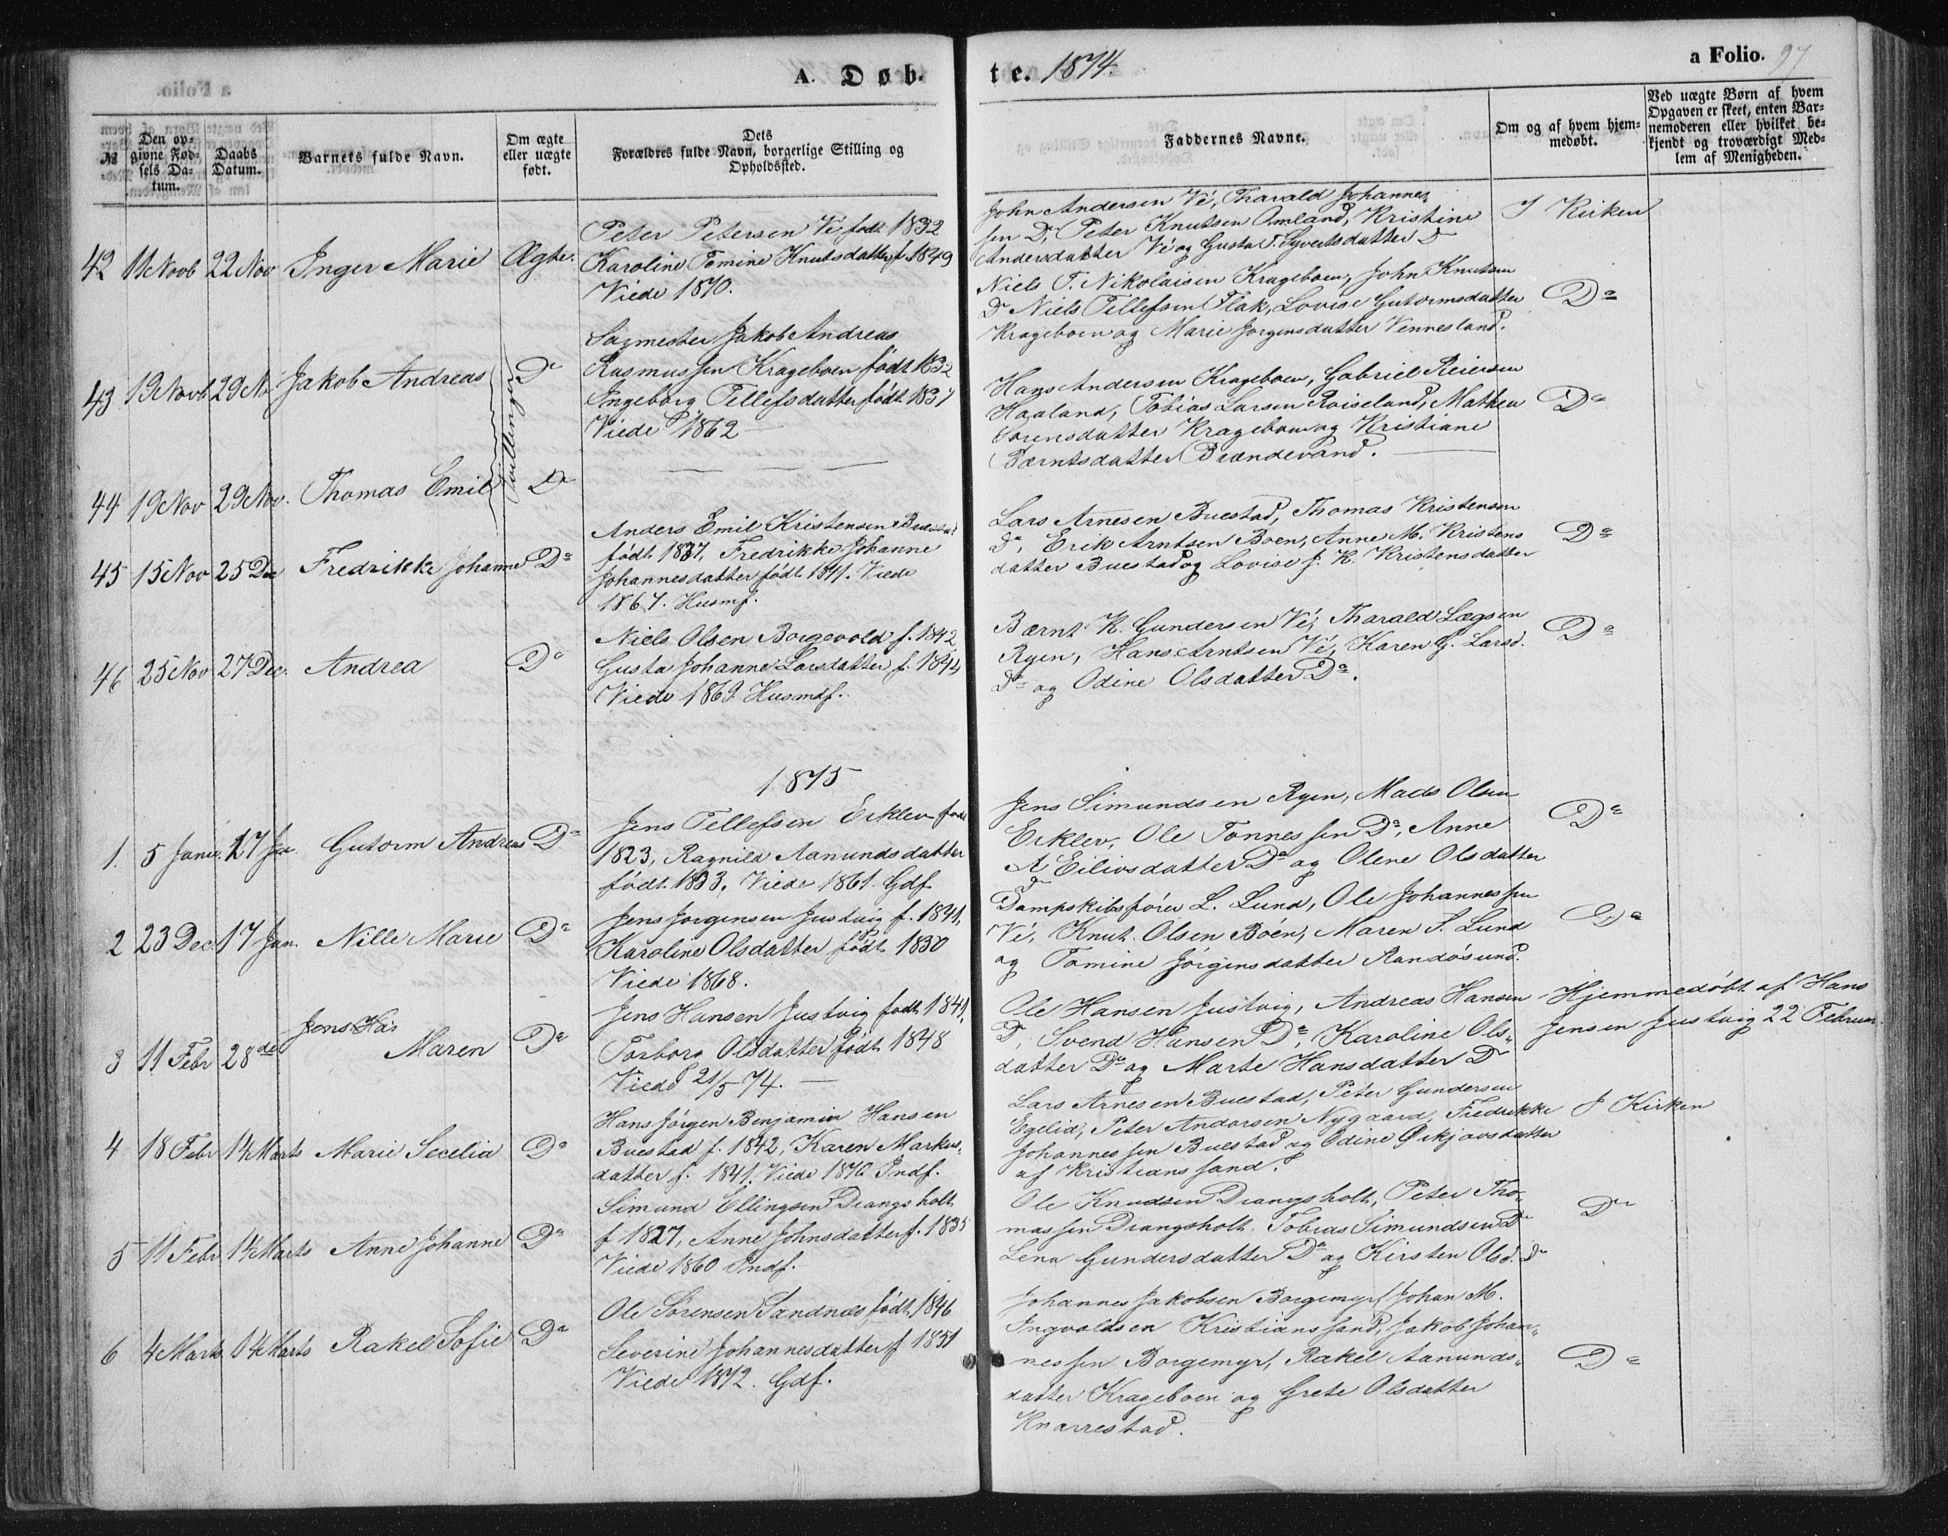 A. Døbte. 1874.
a Folio. 97
№
Den opgivne Fødsels Datum.
Daabs Datum.
Barnets fulde Navn.
Om ægte eller uægte født.
Dets Forældres fulde Navn, borgerlige Stilling og Opholdssted.
Faddernes Navne.
Om og af hvem hjemmedøbt.
Ved uægte Børn af hvem Opgaven er skeet, enten Barnemoderen eller hvilket bekjendt og troværdigt Medlem af Menigheden.
42 11 Novb 22 Nov Inger Marie Ægte.
Peter Petersen Vé født 1832
Karoline Tomine Knutsdatter f. 1849
Viede 1870.
John Andersen Vé, Tharald Johannes
sen Do, Peter Knutsen Omland, Kristine
Andersdatter Vé og Gusta T. Syvertsdatter Do
I Kirken
43 19 Novb 29 No Jakob Andreas Do
Tvillinger
Sagmester Jakob Andreas
Rasmussen Krageboen født 1832
Ingeborg Tellefsdatter født 1837
Viede 1862
Niels T. Nikolaisen Krageboen, John Knutsen
Do Niels Tellefsen Flak, Lovise Gutormsdatter
Krageboen og Marie Jorgensdatter Vennesland.
Do
44 19 Nov 29 Nov. Thomas Emil Do
Hans Andersen Krageboen, Gabriel Reiersen
Haaland, Tobias Larsen Roiseland, Mathea
Sorensdatter Krageboen og Kristiane
Bærntsdatter Brændevand.
Do
45 15 Nov 25 Dec Fredrikke Johanne Do
Anders Emil Kristensen Buestad
født 1837. Fredrikke Johanne
Johannesdatter født 1841. Viede
1867. Husmf.
Lars Arnesen Buestad, Thomas Kristensen
Do, Erik Arntsen Boen, Anne M. Kristens
datter Buestad og Lovise J. K. Kristensdatter
Do
46 25 Nov 27 Dec. Andrea Do
Niels Olsen Borgevold f. 1842
Gusta Johanne Larsdatter f. 1844
Viede 1869. Husmdf.
Bærnt K. Gundersen Vé, Tharald Lægsen
Ryen, Hans Arntsen Vé, Karen G. Larsd.
Do og Odine Olsdatter Do.
Do
1875
1. 5 Janu. 17 Jan Gutorm Andreas Do
Jens Tellefsen Erklev født
1823, Ragnild Aamundsdatter
født 1833. Viede 1861. Gdf.
Jens Simundsen Ryen, Mads Olsen
Erklev, Ole Tonnessen Do, Anne
A Eilivsdatter Do og Olene Olsdatter
Do
Do
2 23 Dec 17 Jan. Nille Marie Do
Jens Jorgensen Justvig f. 1841.
Karoline Olsdatter født 1830
Viede 1868.
Dampskibsfører L. Lund, Ole Johannessen
Vé, Knut Olsen Boén, Maren S. Lund
og Tomine Jorgensdatter Randøsund.
Do
3 11 Febr 28de Jens Has
Maren Do
Jens Hansen Justvig født 1841,
Torborg Olsdatter født 1848
Viede 21/5 74.
Ole Hansen Justvig, Andreas Hansen
Do, Svend Hansen Do, Karoline Ols-
datter Do og Marte Hansdatter Do
Hjemmedøbt af Hans
Jensen Justvig 22 Februar.
4 18 Febr 14 Marts Marie Secelia Do
Hans Jørgen Benjamin Hansen
Buestad f. 1842, Karen Markus-
datter f. 1841. Viede 1870. Indf.
Lars Arnesen Buestad, Peter Gundersen
Egelid, Peter Andersen Nygaard, Fredrikke
Johannessen Buestad og Odine Ørkjovsdatter
af Kristianssand.
I Kirken
5 11 Febr 14 Marts Anne Johanne Do
Simund Ellingsen Drangsholt
f 1827, Anne Johnsdatter f. 1835
Viede 1860 Indf.
Ole Knudsen Drangsholt, Peter Tho-
massen Drangsholt. Tobias Simundsen Do
Lena Gundersdatter Do og Kirsten Olsd. Do
Do
6 4 Marts 14 Marts Rakel Sofie Do
Ole Sørensen Sandnæs født 1846
Severine Johannesdatter f 1851
Viede 1872. Gdf.
Johannes Jakobsen Borgemyr, Johan M.
Ingvoldsen Kristianssand, Jakob Johan-
nessen Borgemyr, Rakel Aamunds-
datter Krageboen og Grete Olsdatter
Knarrestad.
Do